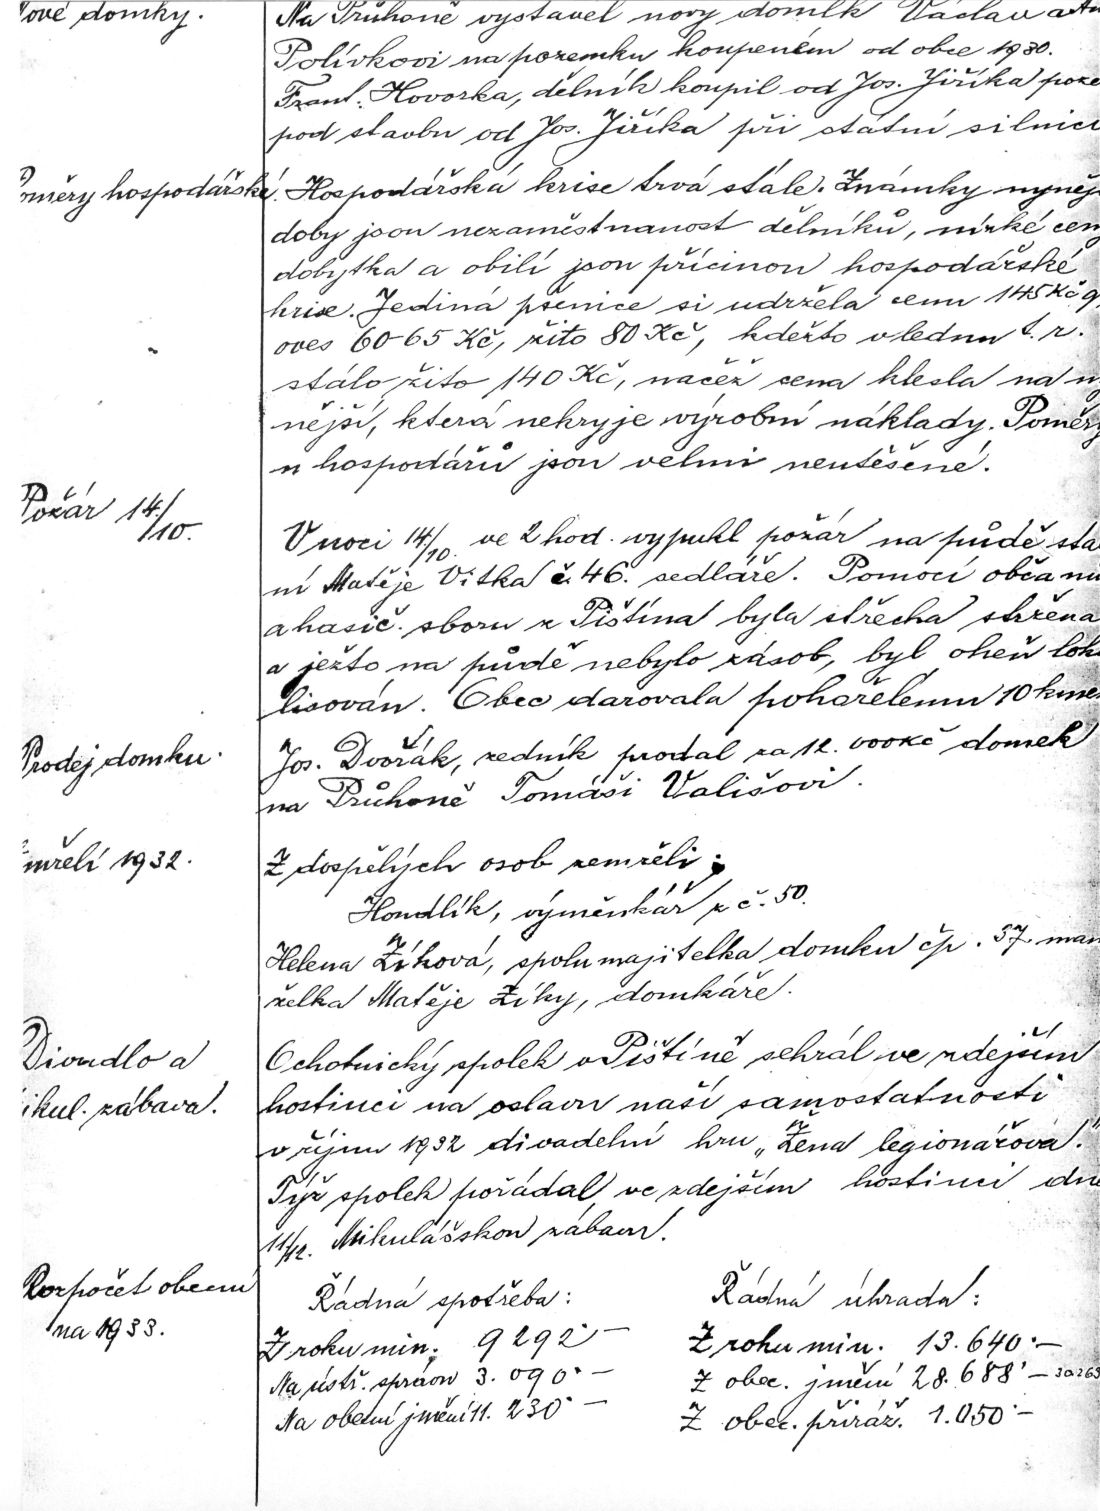 ové domky.
Na Průhoně vystavěl nový domek Václav a
Polívkovi na pozemku koupeném od obce 1930.
Frant. Hovorka, dělník koupil od Jos. Jiříka poze
pod stavbu od Jos. Jiříka při státní silnici
měry hospodářské.
Hospodářská krise trvá stále. Známky nyněj
doby jsou nezaměstnanost dělníků, nízké cen
dobytka a obilí jsou příčinou hospodářské
krise. Jediná pšenice si udržela cenu 145 Kč q,
oves 60-65 Kč, žito 80 Kč, kdežto v lednu t. r.
stálo žito 140 Kč, načež cena klesla na ny
nější, která nekryje výrobní náklady. Poměry
u hospodářů jsou velmi neutěšené.
Požár 14/10.
V noci 14/10. ve 2 hod. vypukl požár na půdě sta
ní Matěje Vitka č. 46. sedláře. Pomocí občanů
a hasič. sboru z Pištína byla střecha stržena
a ježto na půdě nebylo zásob, byl oheň lok
lisován. Obec darovala pohořelému 10 kme
Prodej domku.
Jos. Dvořák, zedník prodal za 12.000 Kč domek
na Průhoně Tomáši Vališovi.
mřelí 1932.
Z dospělých osob zemřeli:
Hondlík, výměnkář z č. 50.
Helena Zíková, spolumajitelka domku čp. 37. man
želka Matěje Zíky, domkáře.
Divadlo a
ikul. zábava.
Ochotnický spolek v Pištíně sehrál ve zdejším
hostinci na oslavu naší samostatnosti
v říjnu 1932 divadelní hru „Žena legionářova."
Týž spolek pořádal ve zdejším hostinci dne
11/12. Mikulášskou zábavu.
Rozpočet obecní
na 1933.
Řádná spotřeba: Řádná úhrada:
Z roku min. 9292·— Z roku min. 13.640·—
Na ústř. správu 3.090·— Z obec. jmění 28.688·—
Na obecní jmění 11.230·— Z obec. přiráž. 1.050·—